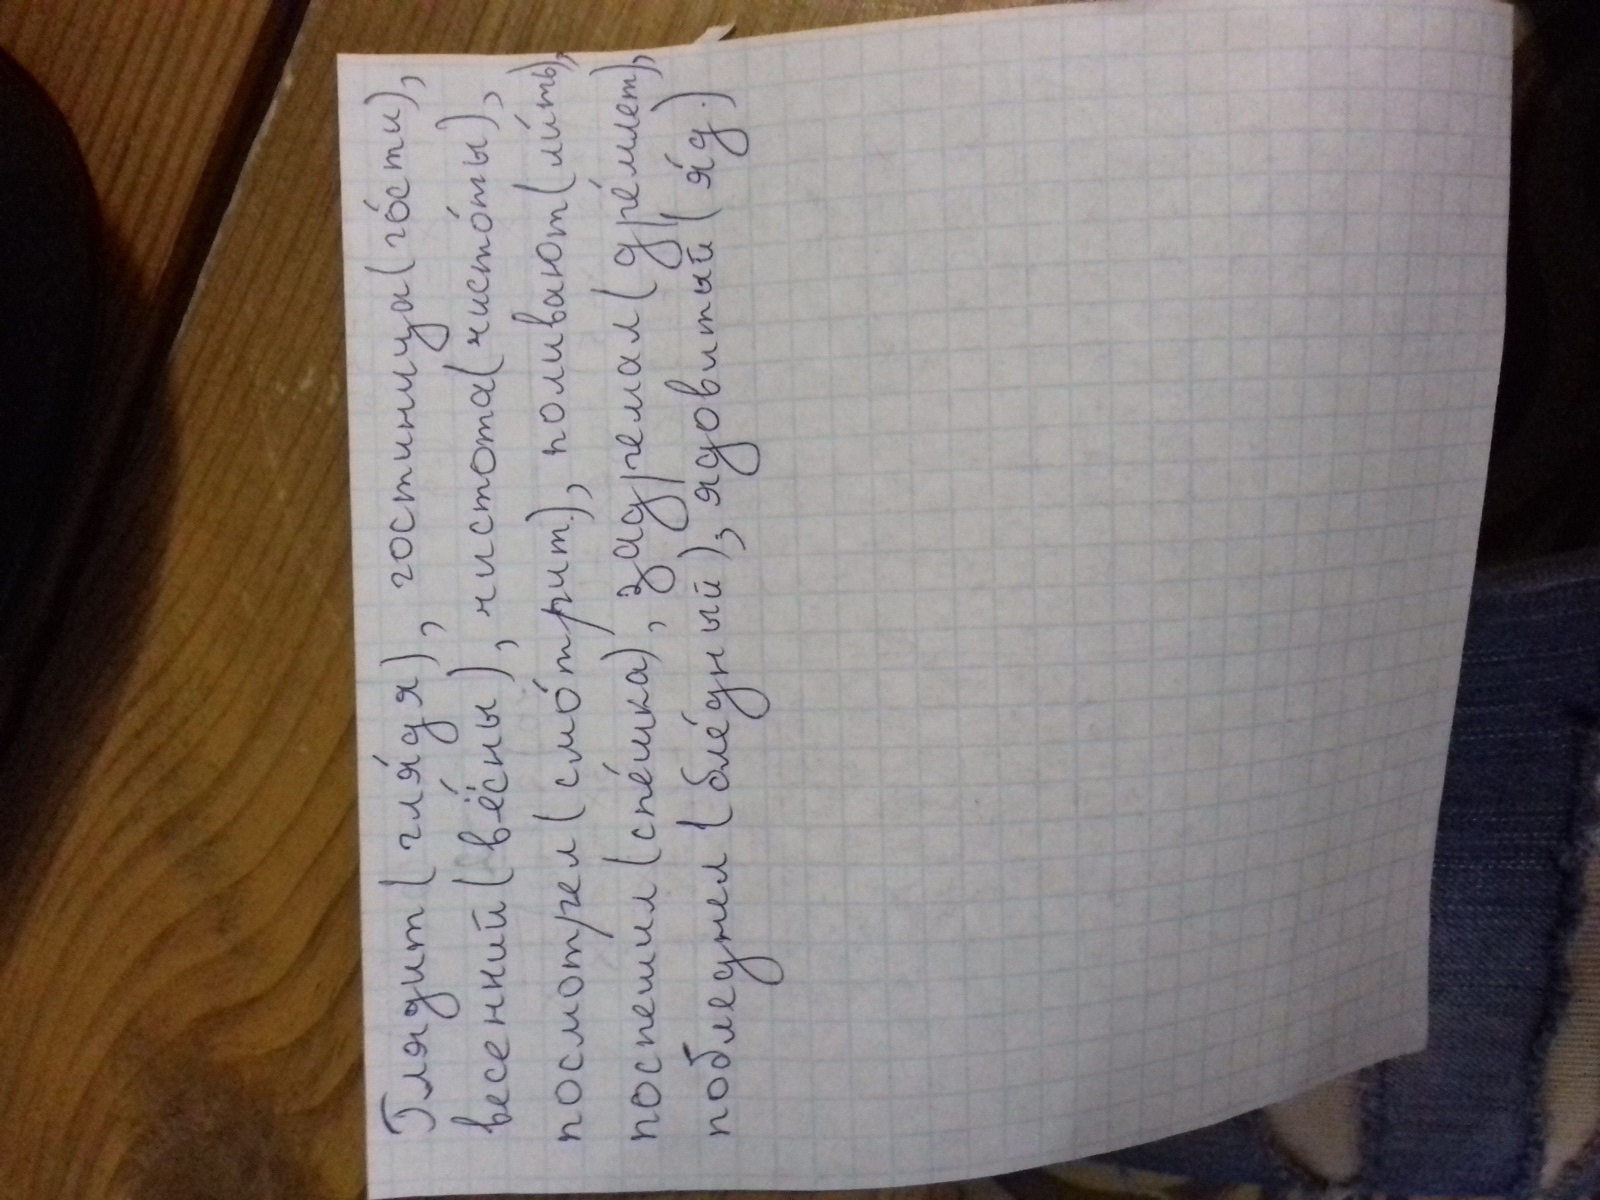 Глядит (гля́дя), гостиница (го́сти),
весенний (вёсны), чистота (чисто́ты),
посмотрел (смо́трит), поливают (ли́ть),
поспешил (спе́шка), задремал (дре́млет),
побледнел (бле́дный), ядовитый (я́д.)